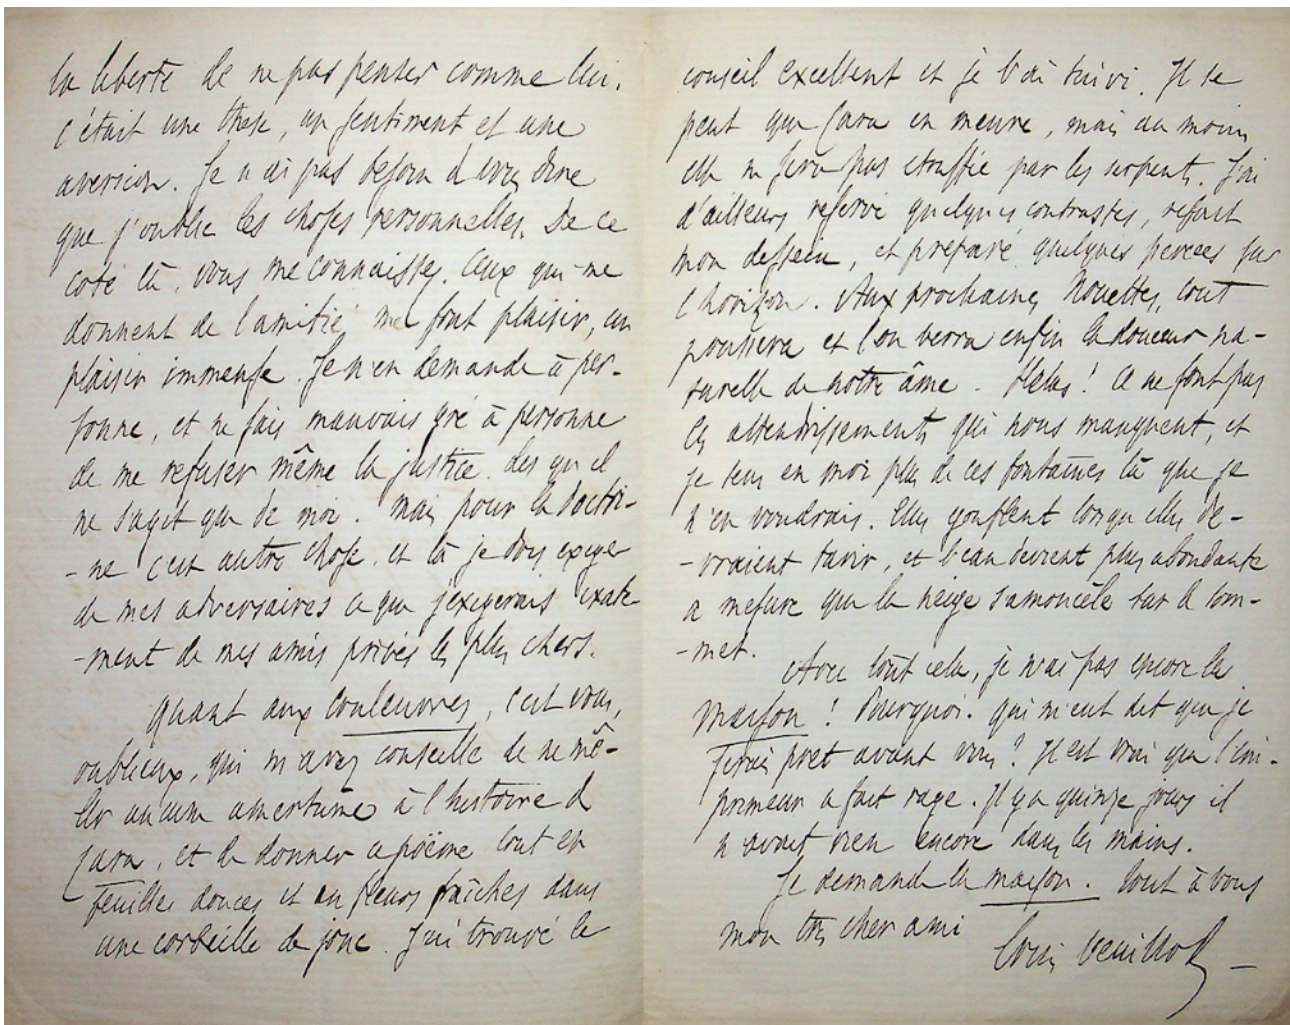 la liberté de ne pas penser comme lui.
C'était une thèse, un sentiment et une
aversion. Je n'ai pas besoin d vous dire
que j'oublie les choses personnelles. De ce
coté là, vous me connaissez. Ceux qui me
donnent de l'amitié, me font plaisir, un
plaisir immense. Je n'en demande à per-
sonne, et ne sais mauvais gré à personne
de me refuser même la justice, dès qu'il
ne s'agit que de moi. Mais pour la doctri-
-ne c'est autre chose, et là je dois exiger
de mes adversaires ce que j'exigerais exacte-
-ment de mes amis privés les plus chers.
Quant aux couleuvres, c'est vous,
oublieux, qui m'avez conseillé de ne mê-
ler aucune amertume à l'histoire d
Çara, et de donner ce poëme tout en
feuilles douces et en fleurs fraîches dans
une corbeille de jonc. J'ai trouvé le
conseil excellent et je l'ai suivi. Il se
peut que Çara en meure, mais au moins
elle ne sera pas étouffée par les serpents. J'ai
d'ailleurs réservé quelques contrastes, refait
mon dessein, et préparé quelques percées sur
l'horizon. Aux prochaines Nouettes, tout
poussera et l'on verra enfin la douceur na-
turelle de notre âme. Hélas! Ce ne sont pas
les attendrissements qui nous manquent, et
je sens en moi plus de ces fontaines là que je
n'en voudrais. Elles gonflent lorsqu'elles de-
-vraient tarir, et l'eau devient plus abondante
a mesure que la neige s'amoncèle sur le som-
-met.
Avec tout cela, je n'ai pas encore la
maison! Pourquoi. Qui m'eut dit que je
serais prêt avant vous? Il est vrai que l'im-
primeur a fait rage. Il y a quinze jours il
n'avait rien encore dans les mains.
Je demande la maison. Tout à vous
mon très cher ami
Louis Veuillot